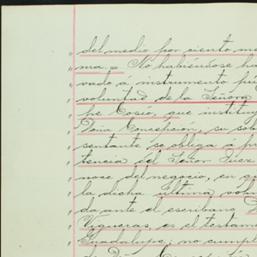 del medio por ciento me
ma. = No habiéndose ha
vado á instrumento pú
voluntad de la Señora
pe Cosío, que instituy
Doña Concepción, su sob
sentante se obliga á pr
tencia del Señor Juez
noce del negocio, en q
la dicha última volun
da ante el escribano
Vigueras, es el testam
Guadalupe; no cumpl